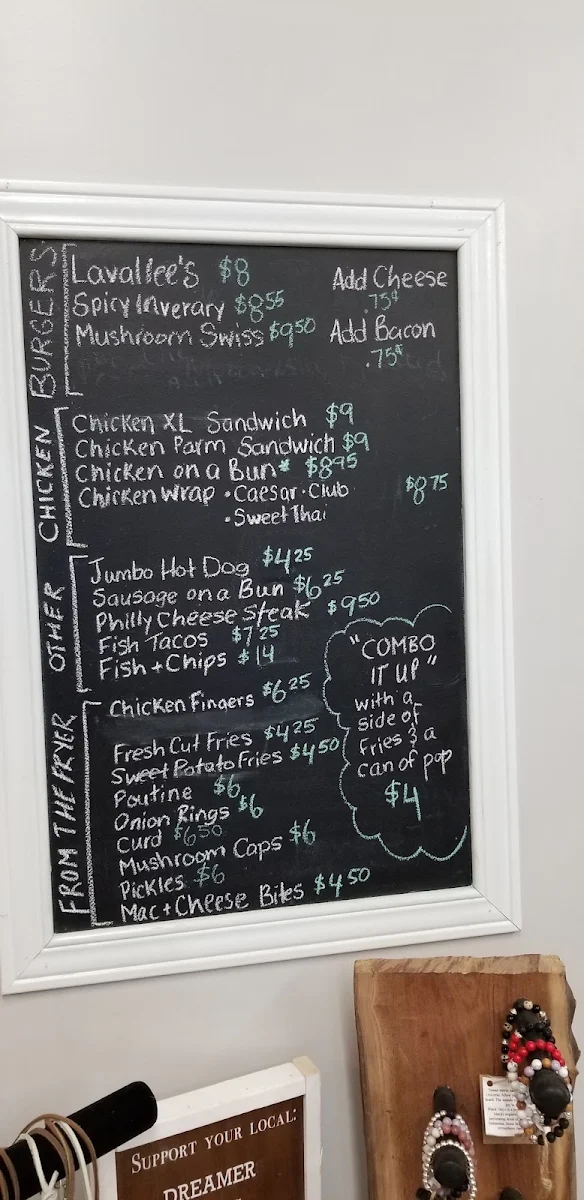 BURGERS
Lavallee's $8
Spicy Inverary $8.55
Mushroom Swiss $9.50
Add Cheese
.75¢
Add Bacon
.75¢
CHICKEN
Chicken XL Sandwich $9
Chicken Parm Sandwich $9
Chicken on a Bun* $8.95
Chicken Wrap •Caesar •Club $8.75
•Sweet Thai
OTHER
Jumbo Hot Dog $4.25
Sausage on a Bun $6.25
Philly Cheese Steak $9.50
Fish Tacos $7.25
Fish + Chips $14
FROM THE FRYER
Chicken Fingers $6.25
Fresh Cut Fries $4.25
Sweet Potato Fries $4.50
Poutine $6
Onion Rings $6
Curd $6.50
Mushroom Caps $6
Pickles $6
Mac + Cheese Bites $4.50
"COMBO
IT UP"
with a
side of
fries & a
can of pop
$4
SUPPORT YOUR LOCAL:
DREAMER